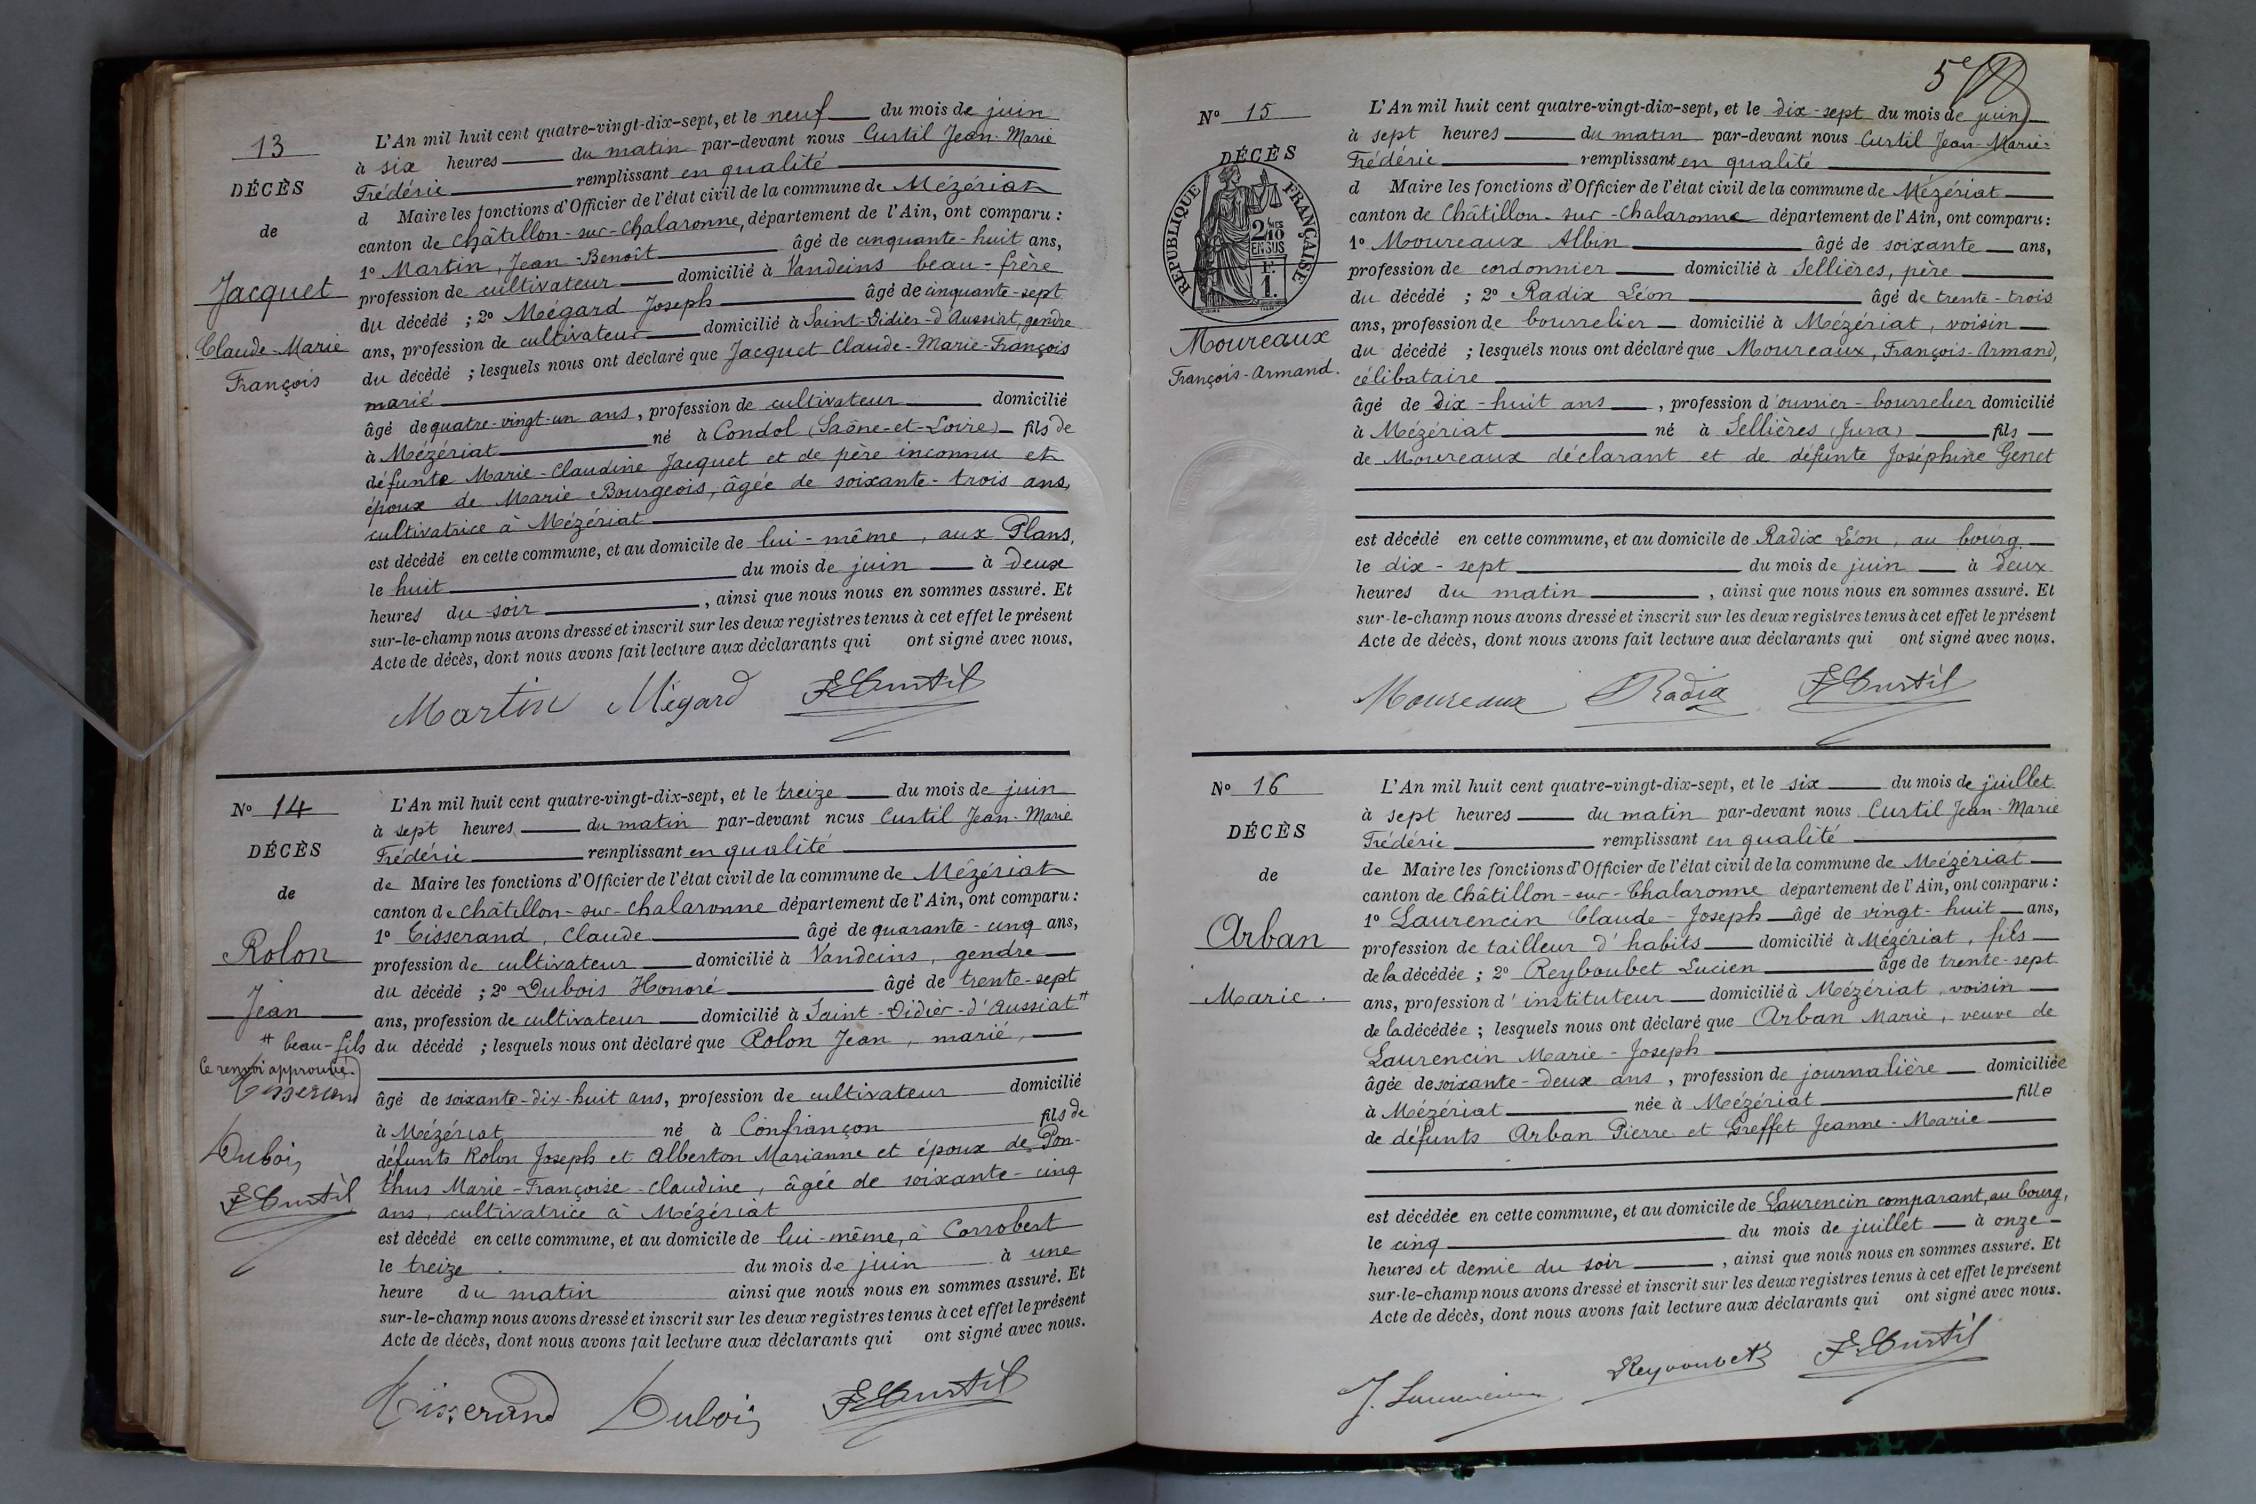 13
DÉCÈS
de
Jacquet
Claude-Marie
François
L'An mil huit cent quatre-vingt-dix-sept, et le neuf du mois de juin
à six heures du matin par-devant nous Curtil Jean-Marie
Frédéric remplissant en qualité
d Maire les fonctions d'Officier de l'état civil de la commune de Mézériat
canton de Châtillon-sur-Chalaronne, département de l'Ain, ont comparu :
1º Martin, Jean-Benoît âgé de cinquante-huit ans,
profession de cultivateur domicilié à Vandeins beau-frère
du décédé ; 2º Mégard Joseph âgé de cinquante-sept
ans, profession de cultivateur domicilié à Saint-Didier-d'Aussiat, gendre
du décédé ; lesquels nous ont déclaré que Jacquet Claude-Marie-François
marié
âgé de quatre-vingt-un ans, profession de cultivateur domicilié
à Mézériat né à Condol (Saône-et-Loire) fils de
défunte Marie-Claudine Jacquet et de père inconnu et
époux de Marie Bourgeois, âgée de soixante-trois ans,
cultivatrice à Mézériat
est décédé en cette commune, et au domicile de lui-même, aux Plans,
le huit du mois de juin à deux
heures du soir, ainsi que nous nous en sommes assuré. Et
sur-le-champ nous avons dressé et inscrit sur les deux registres tenus à cet effet le présent
Acte de décès, dont nous avons fait lecture aux déclarants qui ont signé avec nous.
Martin Mégard F Curtil
Nº 14
DÉCÈS
de
Rolon
Jean
# beau-fils
Ce renvoi approuvé.
Tisserand
Dubois
F Curtil
L'An mil huit cent quatre-vingt-dix-sept, et le treize du mois de juin
à sept heures du matin par-devant nous Curtil Jean-Marie
Frédéric remplissant en qualité
de Maire les fonctions d'Officier de l'état civil de la commune de Mézériat
canton de Châtillon-sur-Chalaronne département de l'Ain, ont comparu :
1º Tisserand, Claude âgé de quarante-cinq ans,
profession de cultivateur domicilié à Vandeins, gendre
du décédé ; 2º Dubois Honoré âgé de trente-sept
ans, profession de cultivateur domicilié à Saint-Didier-d'Aussiat #
du décédé ; lesquels nous ont déclaré que Rolon Jean, marié,
âgé de soixante-dix-huit ans, profession de cultivateur domicilié
à Mézériat né à Confrançon fils de
défunts Rolon Joseph et Alberton Marianne et époux de Pon-
thus Marie-Françoise-Claudine, âgée de soixante-cinq
ans, cultivatrice à Mézériat
est décédé en cette commune, et au domicile de lui-même, à Corrobert
le treize du mois de juin à une
heure du matin ainsi que nous nous en sommes assuré. Et
sur-le-champ nous avons dressé et inscrit sur les deux registres tenus à cet effet le présent
Acte de décès, dont nous avons fait lecture aux déclarants qui ont signé avec nous.
Tisserand Dubois F Curtil
Nº 15
DÉCÈS
RÉPUBLIQUE FRANÇAISE
2 10MES
EN SUS
1F.
Moureaux
François-Armand.
L'An mil huit cent quatre-vingt-dix-sept, et le dix-sept du mois de juin
à sept heures du matin par-devant nous Curtil Jean-Marie-
Frédéric remplissant en qualité
d Maire les fonctions d'Officier de l'état civil de la commune de Mézériat
canton de Châtillon-sur-Chalaronne département de l'Ain, ont comparu :
1º Moureaux Albin âgé de soixante ans,
profession de cordonnier domicilié à Sellières, père
du décédé ; 2º Radix Léon âgé de trente-trois
ans, profession de bourrelier domicilié à Mézériat, voisin
du décédé ; lesquels nous ont déclaré que Moureaux, François-Armand,
célibataire
âgé de dix-huit ans, profession d'ouvrier-bourrelier domicilié
à Mézériat né à Sellières (Jura) fils
de Moureaux déclarant et de défunte Joséphine Genet
est décédé en cette commune, et au domicile de Radix Léon, au bourg
le dix-sept du mois de juin à deux
heures du matin, ainsi que nous nous en sommes assuré. Et
sur-le-champ nous avons dressé et inscrit sur les deux registres tenus à cet effet le présent
Acte de décès, dont nous avons fait lecture aux déclarants qui ont signé avec nous.
Moureaux Radix F Curtil
Nº 16
DÉCÈS
de
Arban
Marie.
L'An mil huit cent quatre-vingt-dix-sept, et le six du mois de juillet
à sept heures du matin par-devant nous Curtil Jean-Marie
Frédéric remplissant en qualité
de Maire les fonctions d'Officier de l'état civil de la commune de Mézériat
canton de Châtillon-sur-Chalaronne département de l'Ain, ont comparu :
1º Laurencin Claude-Joseph âgé de vingt-huit ans,
profession de tailleur d'habits domicilié à Mézériat, fils
de la décédée ; 2º Reyboubet Lucien âgé de trente-sept
ans, profession d'instituteur domicilié à Mézériat, voisin
de la décédée ; lesquels nous ont déclaré que Arban Marie, veuve de
Laurencin Marie-Joseph
âgée de soixante-deux ans, profession de journalière domiciliée
à Mézériat née à Mézériat fille
de défunts Arban Pierre et Greffet Jeanne-Marie
est décédée en cette commune, et au domicile de Laurencin comparant, au bourg,
le cinq du mois de juillet à onze
heures et demie du soir, ainsi que nous nous en sommes assuré. Et
sur-le-champ nous avons dressé et inscrit sur les deux registres tenus à cet effet le présent
Acte de décès, dont nous avons fait lecture aux déclarants qui ont signé avec nous.
J. Laurencin Reyboubet F Curtil